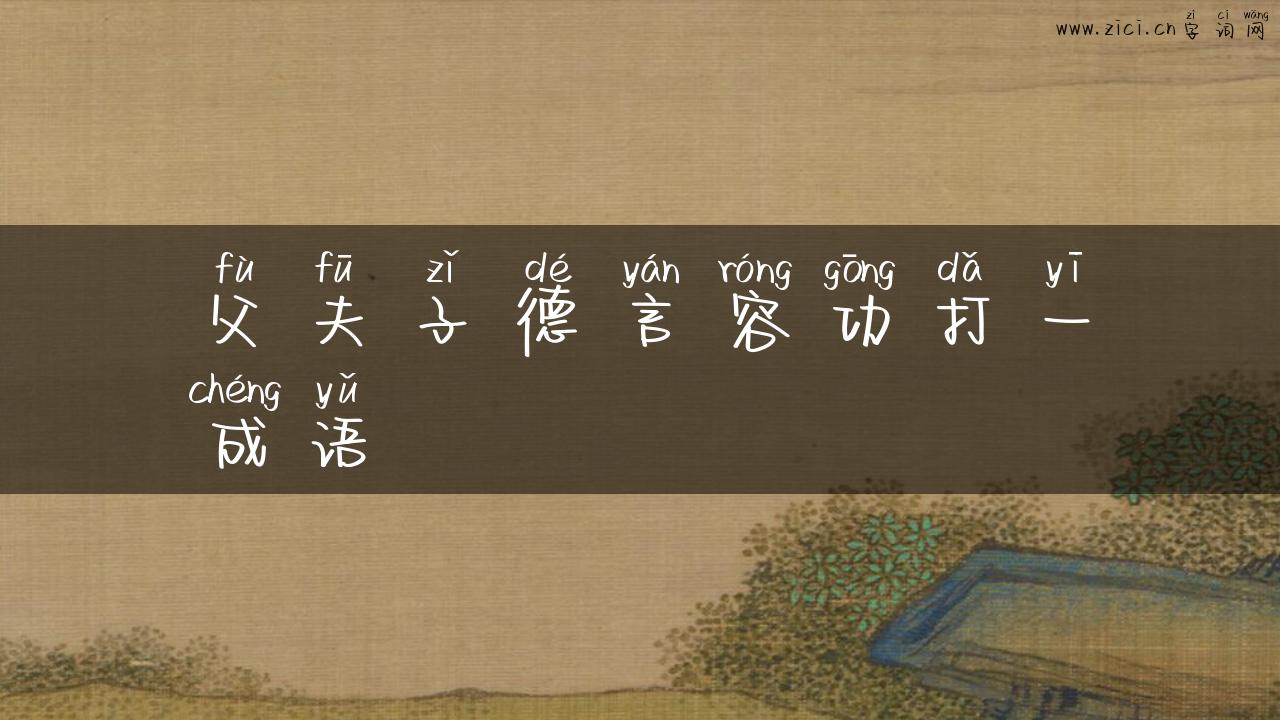 zì cí wǎng
www.zici.cn 字 词 网
fù fū zǐ dé yán róng gōng dǎ yī
父 夫 子 德 言 容 功 打 一
chéng yǔ
成 语